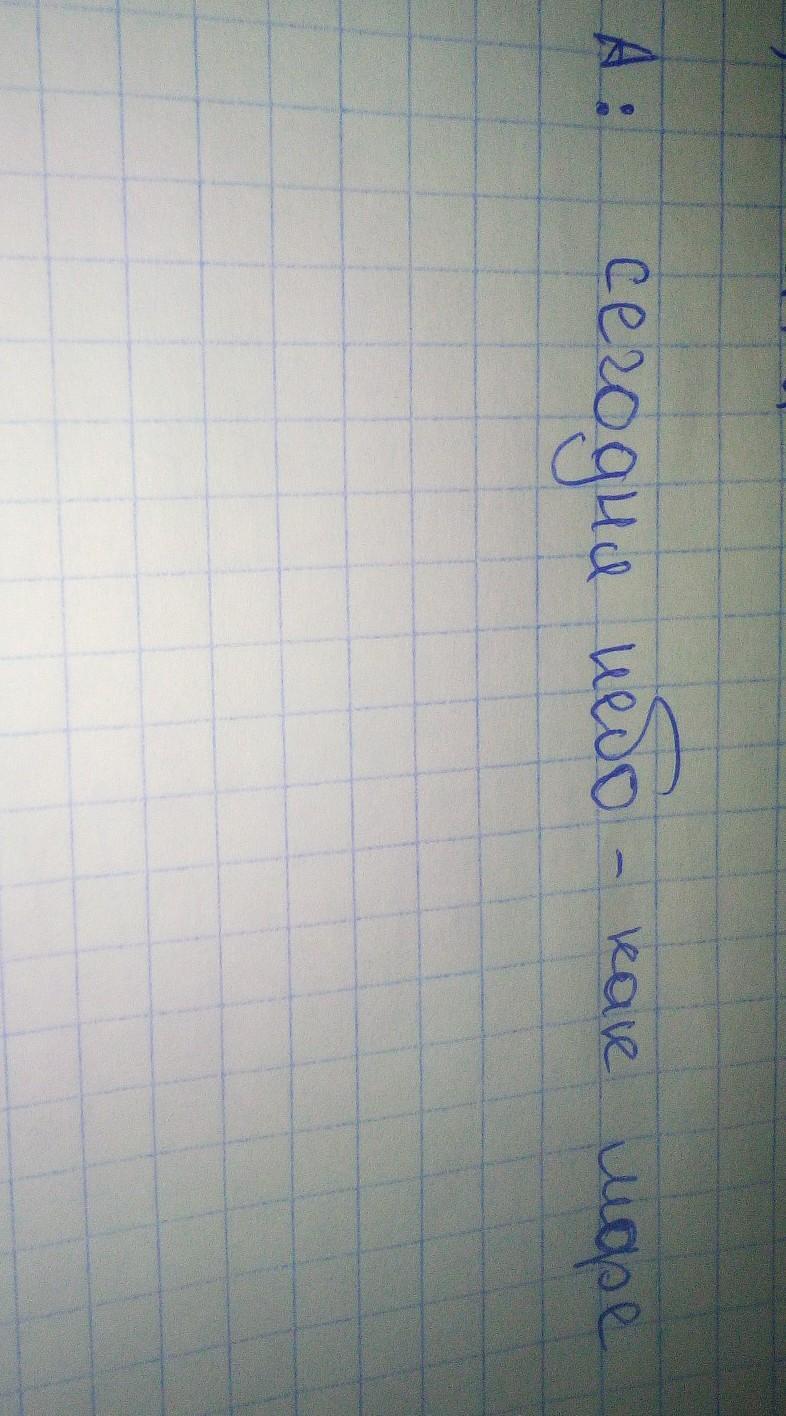 А: сегодня небо - как море